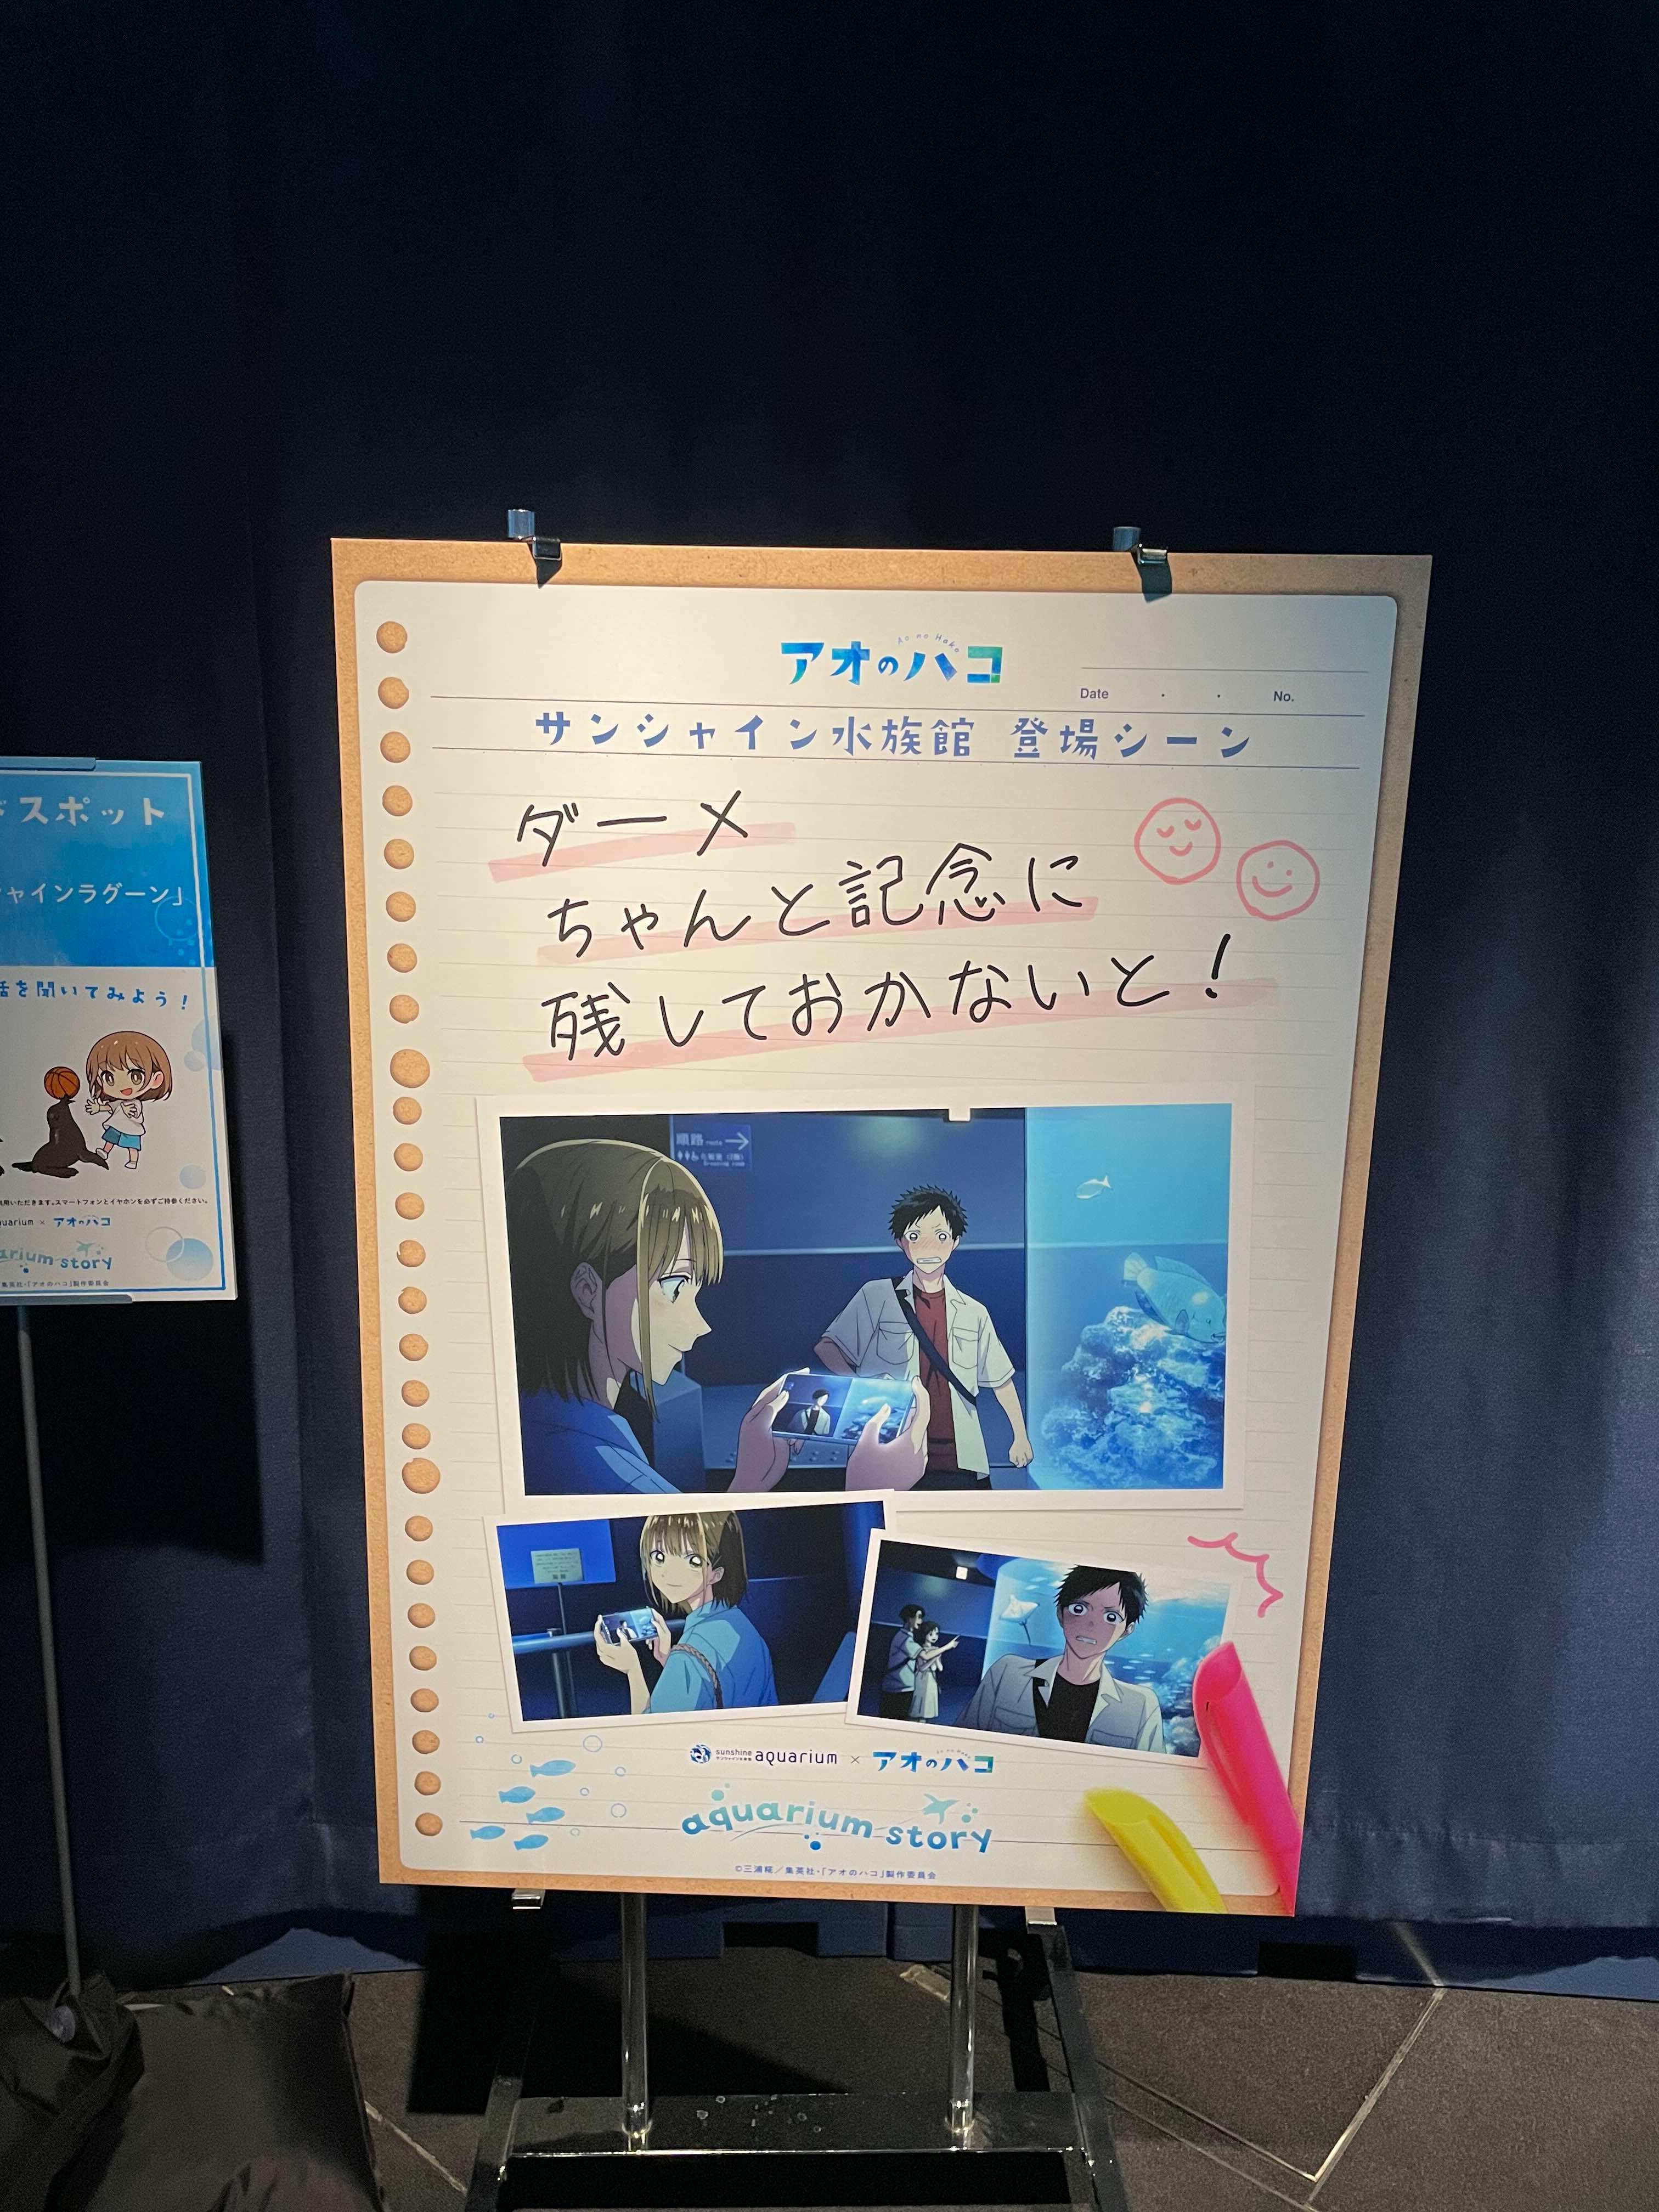 ドスポット
ャインラグーン」
話を聞いてみよう!
用いただきます。スマートフォンとイヤホンを必ずご持参ください。
uarium × アオのハコ
arium story
集英社・「アオのハコ」製作委員会
Ao no Hako
アオのハコ
Date ・ ・ No.
サンシャイン水族館 登場シーン
ダーメ
ちゃんと記念に
残しておかないと!
順路 route →
sunshine aquarium × アオのハコ
サンシャイン水族館
aquarium story
©三浦糀/集英社・「アオのハコ」製作委員会